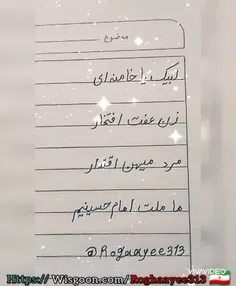 موضوع
لبیک یا خامنه‌ای
زن عفت افتخار
مرد میهن اقتدار
ما ملت امام حسینیم
@Rogaayee313
VIVAVIDEO
Https://Wisgoon.com/Roghaayee313